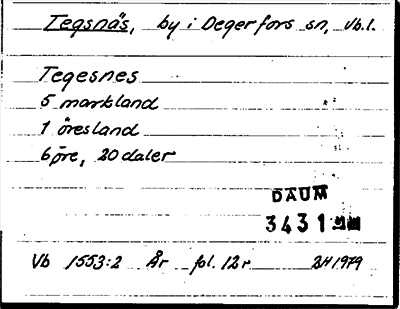 Tegsnäs, by i Degerfors sn, Vb.l.
Tegesnes
5 markland
1 öresland
6 öre, 20 daler
DAUM
3431
Vb 1553:2 År fol. 12 r BH 1979